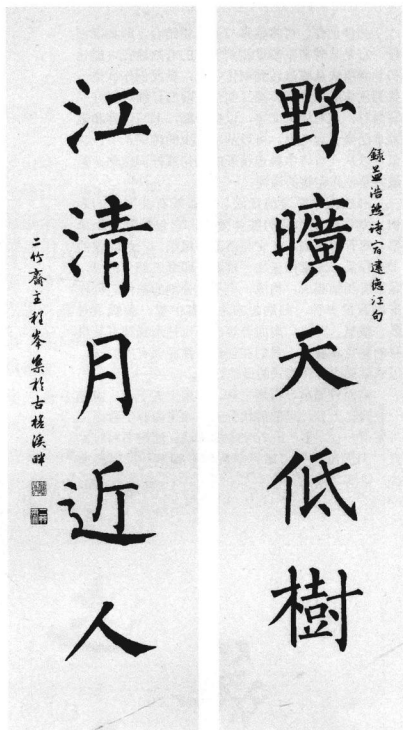 野曠天低樹
錄孟浩然诗宿建德江句
江清月近人
二竹齋主程峯集於古槎溪畔